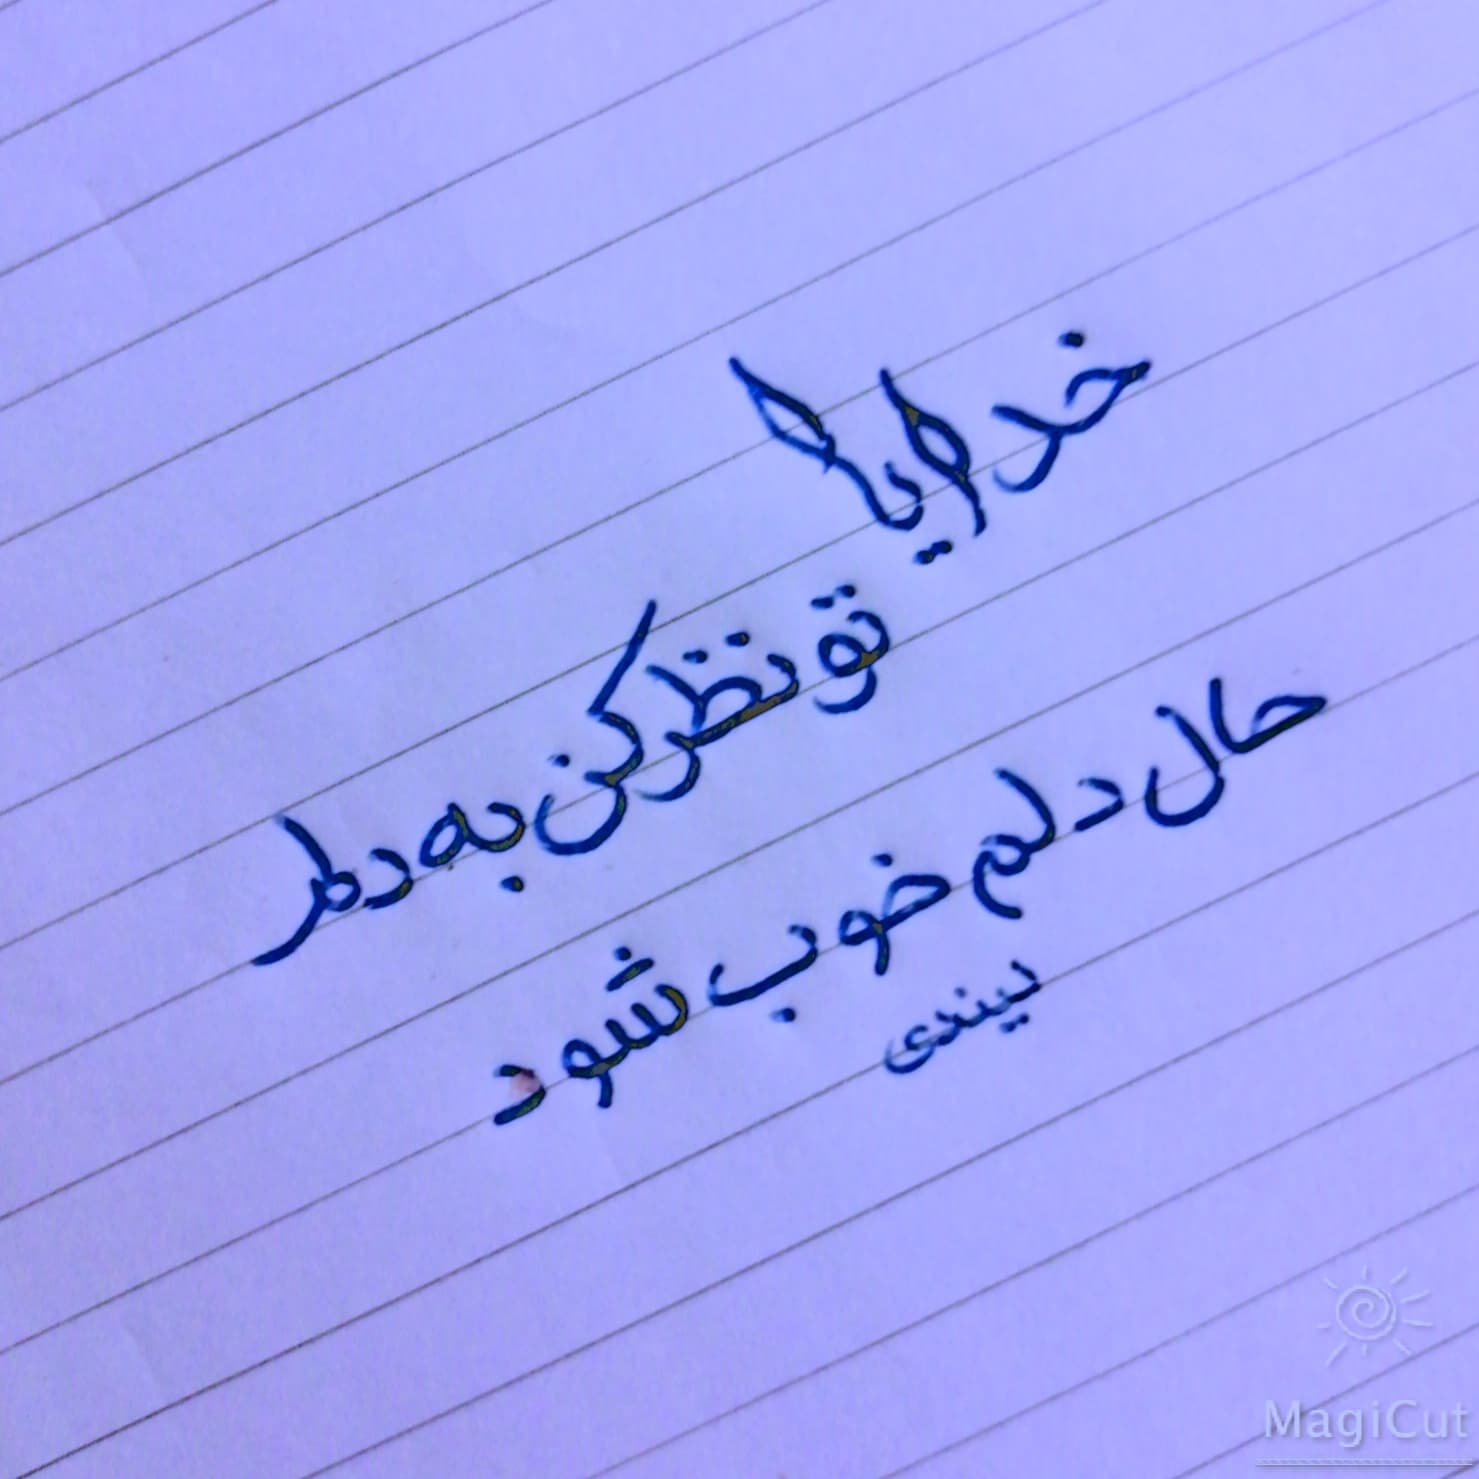 خدایا
تو نظر کن به دلم
حال دلم خوب شود
لیندی
MagiCut